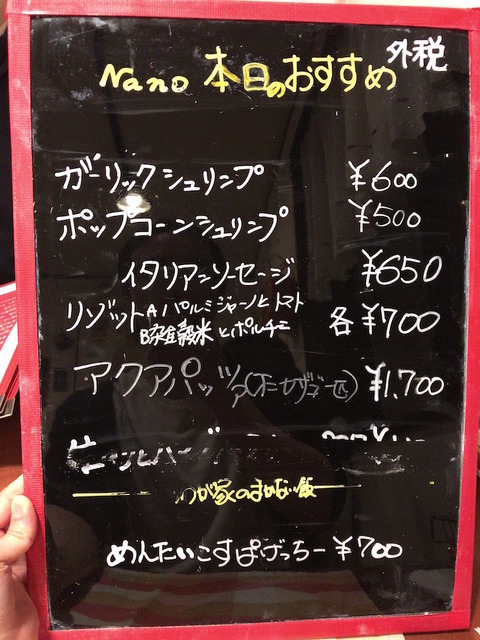 外税
Nano 本日のおすすめ
ガーリックシュリンプ ¥600
ポップコーンシュリンプ ¥500
イタリアンソーセージ ¥650
リゾット Aパルミジャーノとトマト
B雑穀米とポルチーニ 各¥700
アクアパッツァ ¥1,700
わが家のまかない飯
めんたいこすぱげっちー ¥700